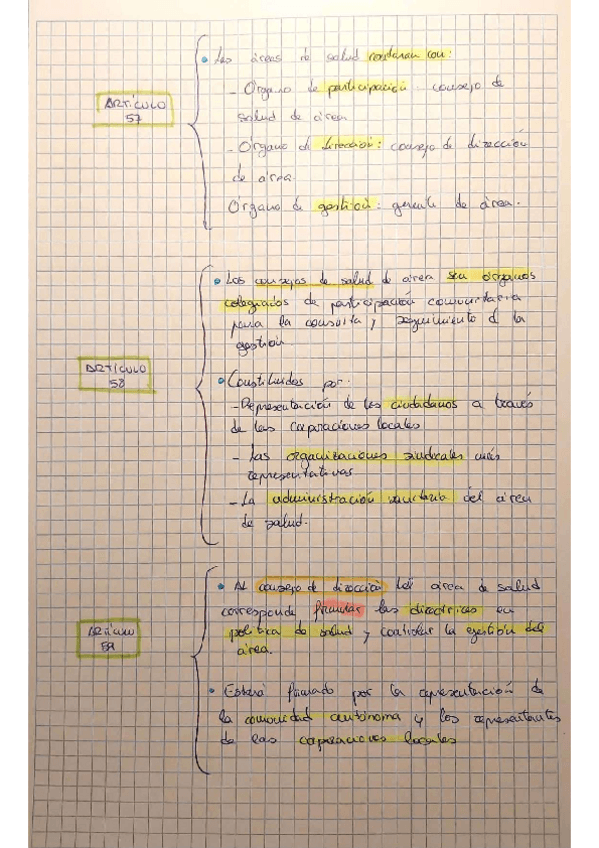 ARTÍCULO
57
• Las áreas de salud contarán con:
- Órgano de participación: consejo de
salud de área
- Órgano de dirección: consejo de dirección
de área.
Órgano de gestión: gerente de área.
ARTÍCULO
58
• Los consejos de salud de área son órganos
colegiados de participación comunitaria
para la consulta y seguimiento d la
gestión
• Constituidos por:
- Representación de los ciudadanos a través
de las corporaciones locales
- Las organizaciones sindicales más
representativas
- La administración sanitaria del área
de salud.
ARTÍCULO
59
• Al consejo de dirección del área de salud
corresponde formular las directrices en
política de salud y controlar la gestión del
área.
• Estará formado por la representación de
la comunidad autónoma y los representantes
de las corporaciones locales